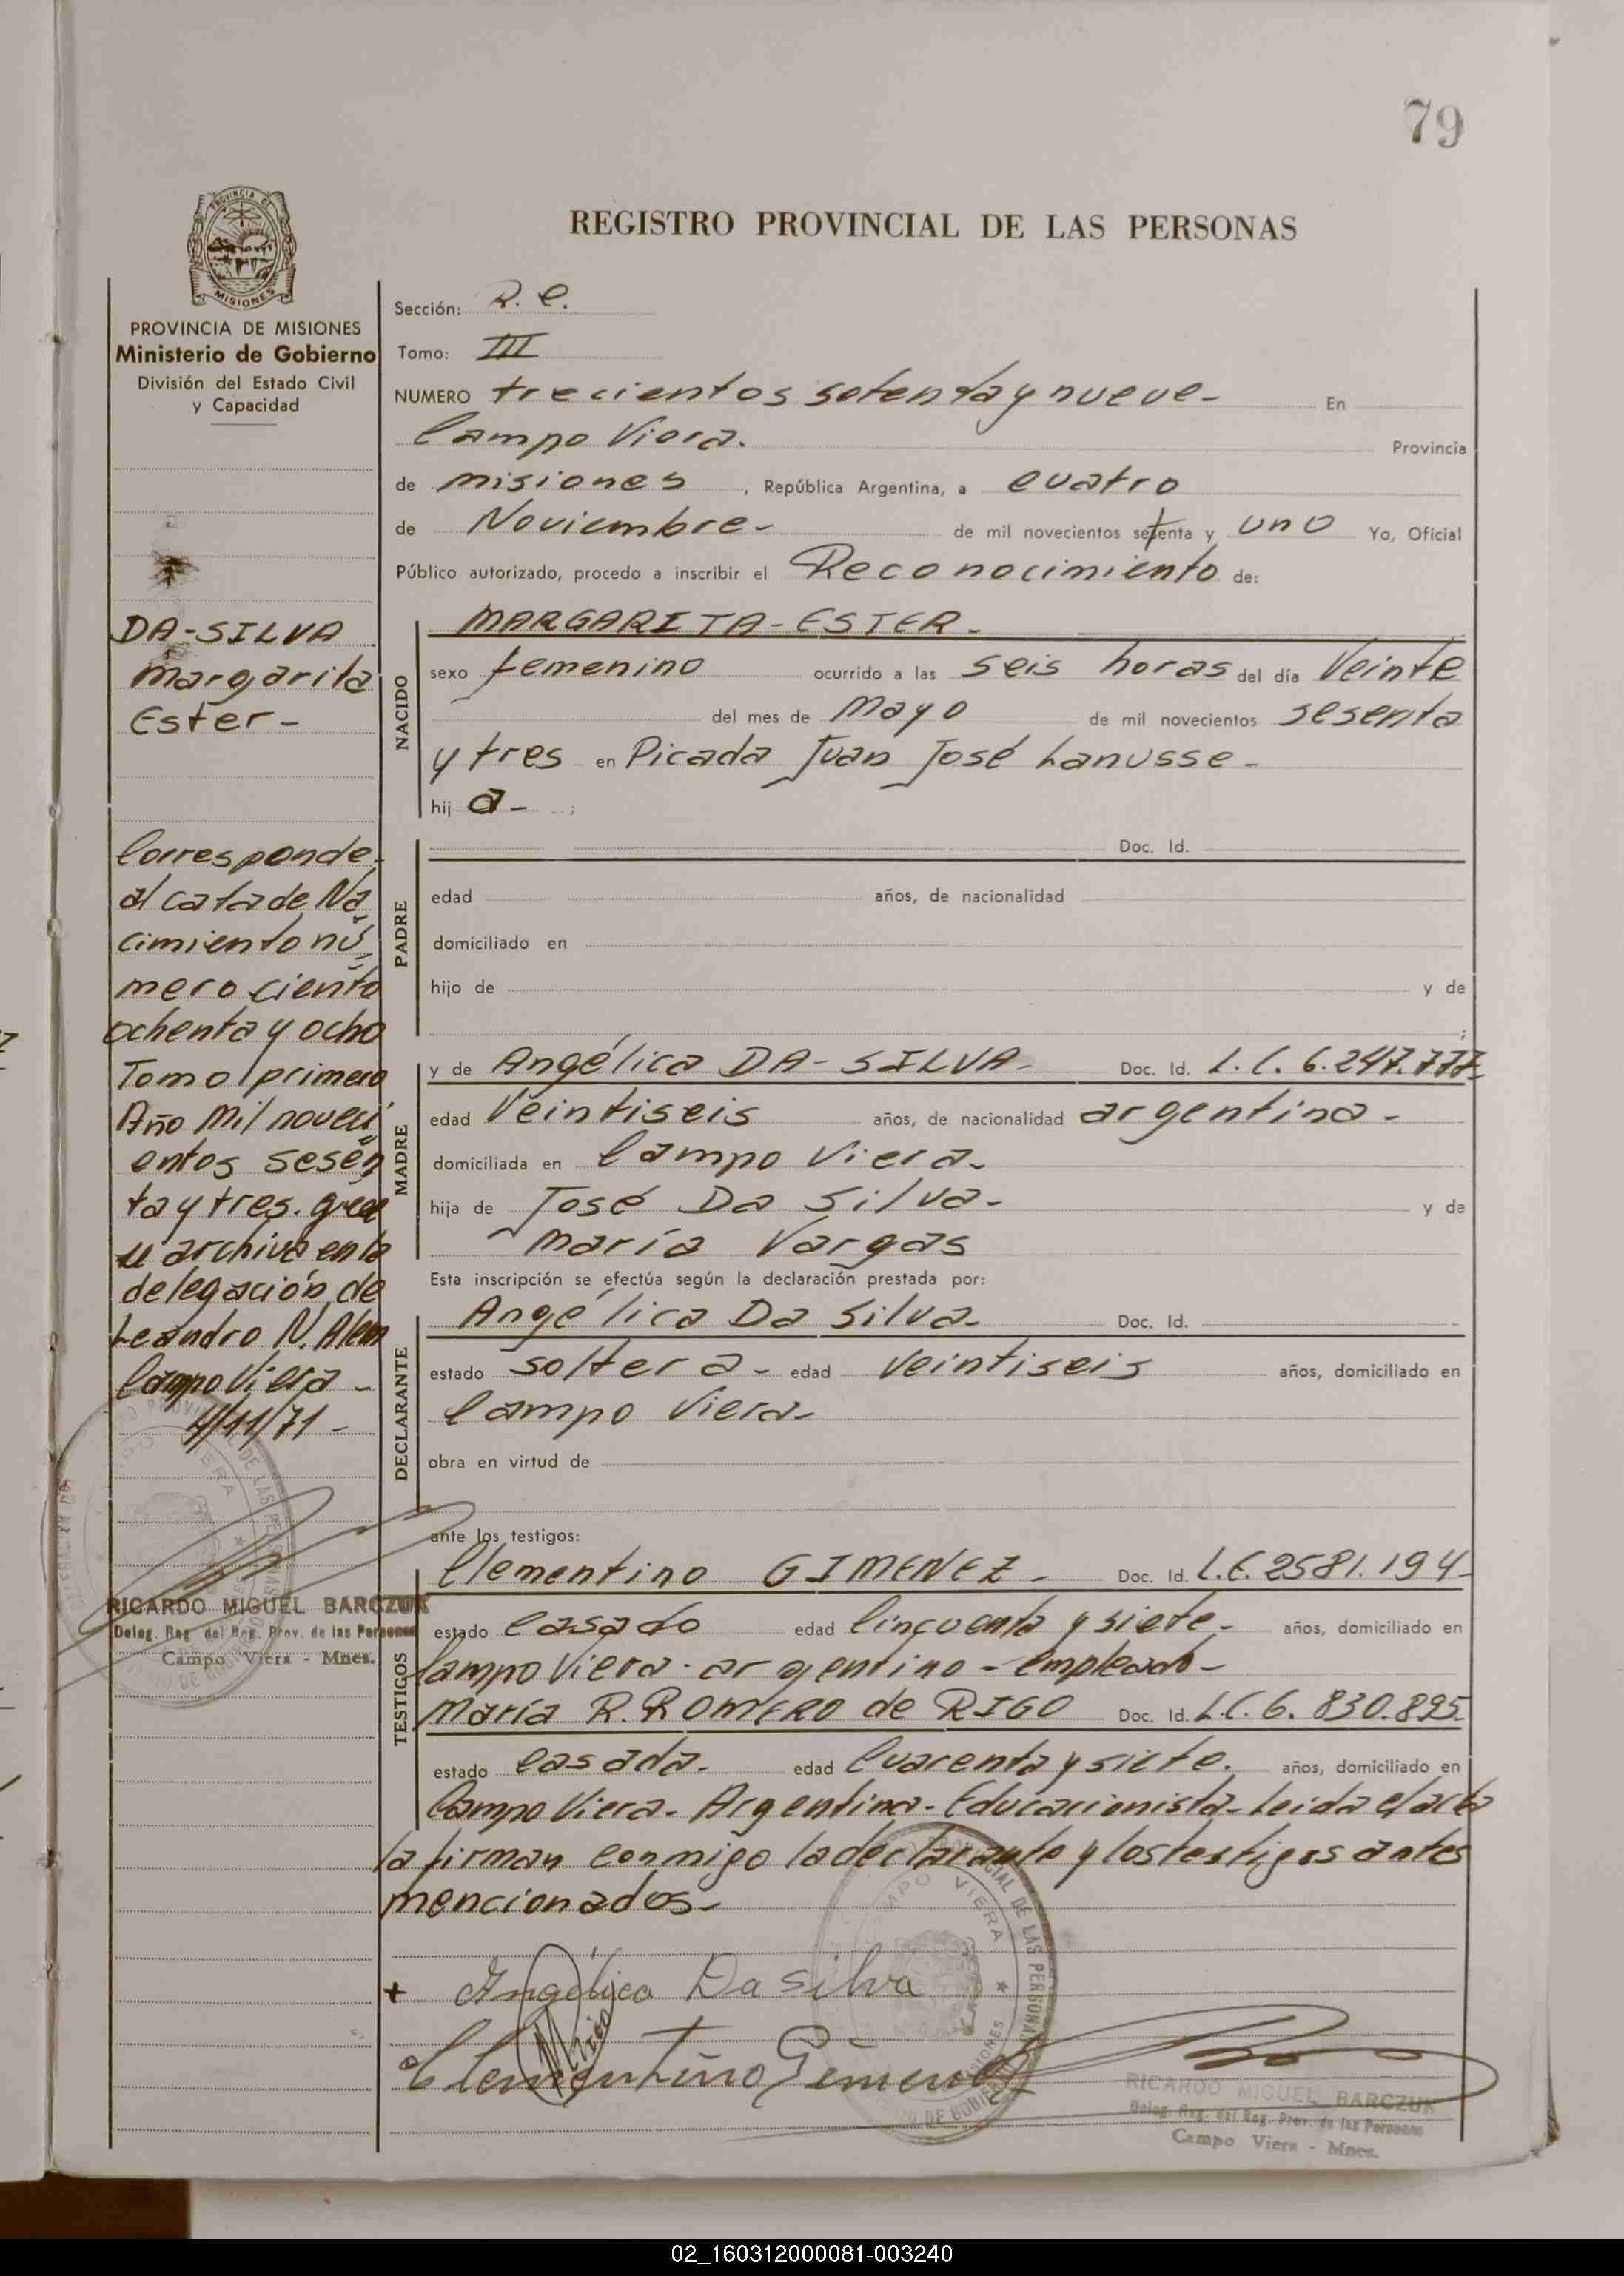 79
REGISTRO PROVINCIAL DE LAS PERSONAS
PROVINCIA DE MISIONES
Ministerio de Gobierno
División del Estado Civil
y Capacidad
Sección: R. e.
Tomo: III
NUMERO trecientos setenta y nueve- En
Campo Viera. Provincia
de misiones, República Argentina, a cuatro
de Noviembre- de mil novecientos setenta y uno Yo, Oficial
Público autorizado, procedo a inscribir el Reconocimiento de:
DA-SILVA
Margarita
Ester-
NACIDO
MARGARITA-ESTER-
sexo femenino ocurrido a las seis horas del día Veinte
del mes de Mayo de mil novecientos sesenta
y tres en Picada Juan José Lanusse-
hij a- ;
Corresponde
al cata de Na
cimiento nú
mero ciento
ochenta y ocho
Tomo primero
Año Mil noveci
entos sesen
ta y tres. que
se archiva en la
delegación de
Leandro N. Alem
Campo Viera-
4/11/71-
RICARDO MIGUEL BARCZUK
Deleg. Reg. del Reg. Prov. de las Personas
Campo Viera - Mnes.
PADRE
Doc. Id.
edad años, de nacionalidad
domiciliado en
hijo de y de
;
MADRE
y de Angélica DA-SILVA- Doc. Id. L.C. 6.247.777-
edad Veintiseis años, de nacionalidad argentina-
domiciliada en Campo Viera-
hija de José Da Silva- y de
María Vargas
Esta inscripción se efectúa según la declaración prestada por:
DECLARANTE
Angélica Da Silva- Doc. Id.
estado soltera- edad Veintiseis años, domiciliado en
Campo Viera-
obra en virtud de
ante los testigos:
TESTIGOS
Clementino GIMENEZ- Doc. Id. L.E. 2581.194-
estado casado edad Cincuenta y siete- años, domiciliado en
Campo Viera. argentino-empleado-
María R. ROMERO de RIGO Doc. Id. L.C. 6.830.895
estado casada. edad Cuarenta y siete. años, domiciliado en
Campo Viera. Argentina-Educacionista-Leida el acta
la firman conmigo la declarante y los testigos antes
mencionados-
+ Angélica Da Silva
Clementino Gimenez
RICARDO MIGUEL BARCZUK
Deleg. Reg. del Reg. Prov. de las Personas
Campo Viera - Mnes.
02_160312000081-003240